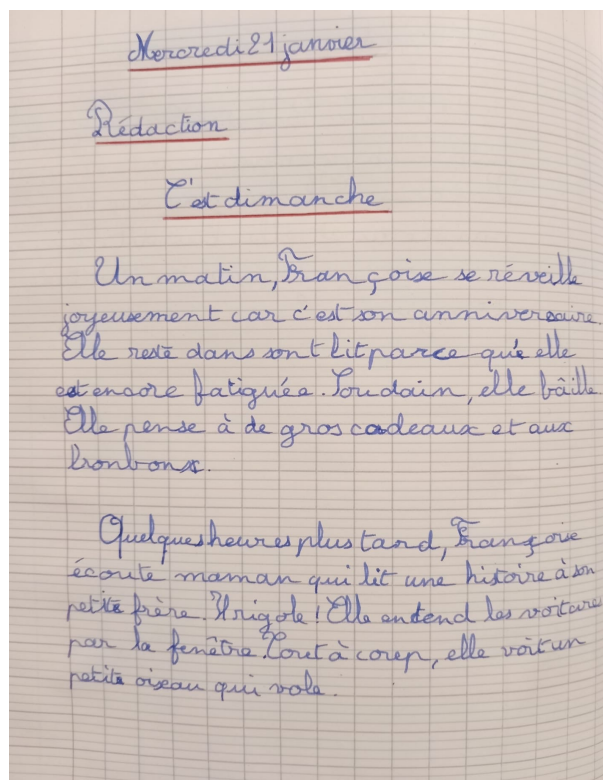 Mercredi 21 janvier
Rédaction
C'est dimanche
Un matin, Françoise se réveille
joyeusement car c'est son anniversaire.
Elle reste dans sont lit parce qu'e elle
est encore fatiguée. Soudain, elle bâille.
Elle pense à de gros cadeaux et aux
bonbons.
Quelques heures plus tard, Françoise
écoute maman qui lit une histoire à son
petite frère. Il rigole ! Elle entend les voitures
par la fenêtre. Tout à coup, elle voit un
petite oiseau qui vole.